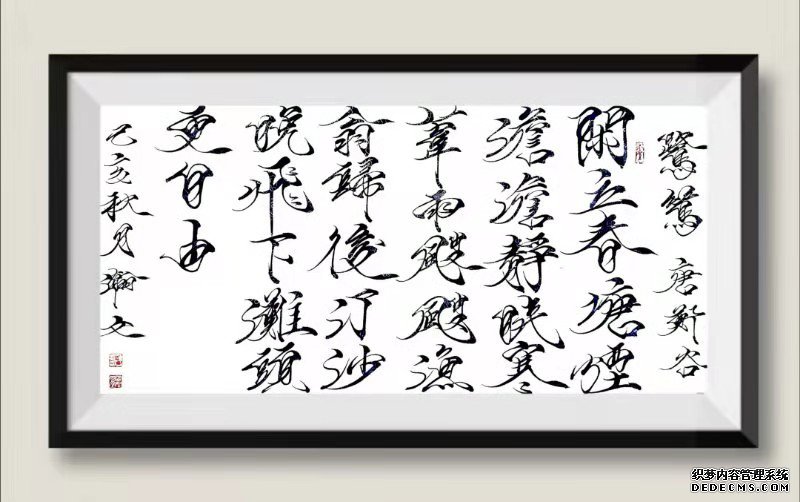 鷺鷥 唐 鄭谷
閑立春塘煙
澹澹靜眠寒
葦雨颼颼漁
翁歸後汀沙
晚飛下灘頭
更自由
己亥秋月瀚文
织梦内容管理系统
DEDECMS.COM